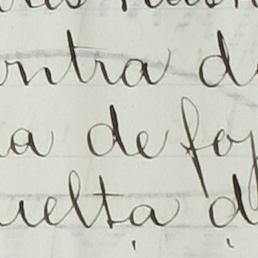 ontra d
a de foj
uelta d